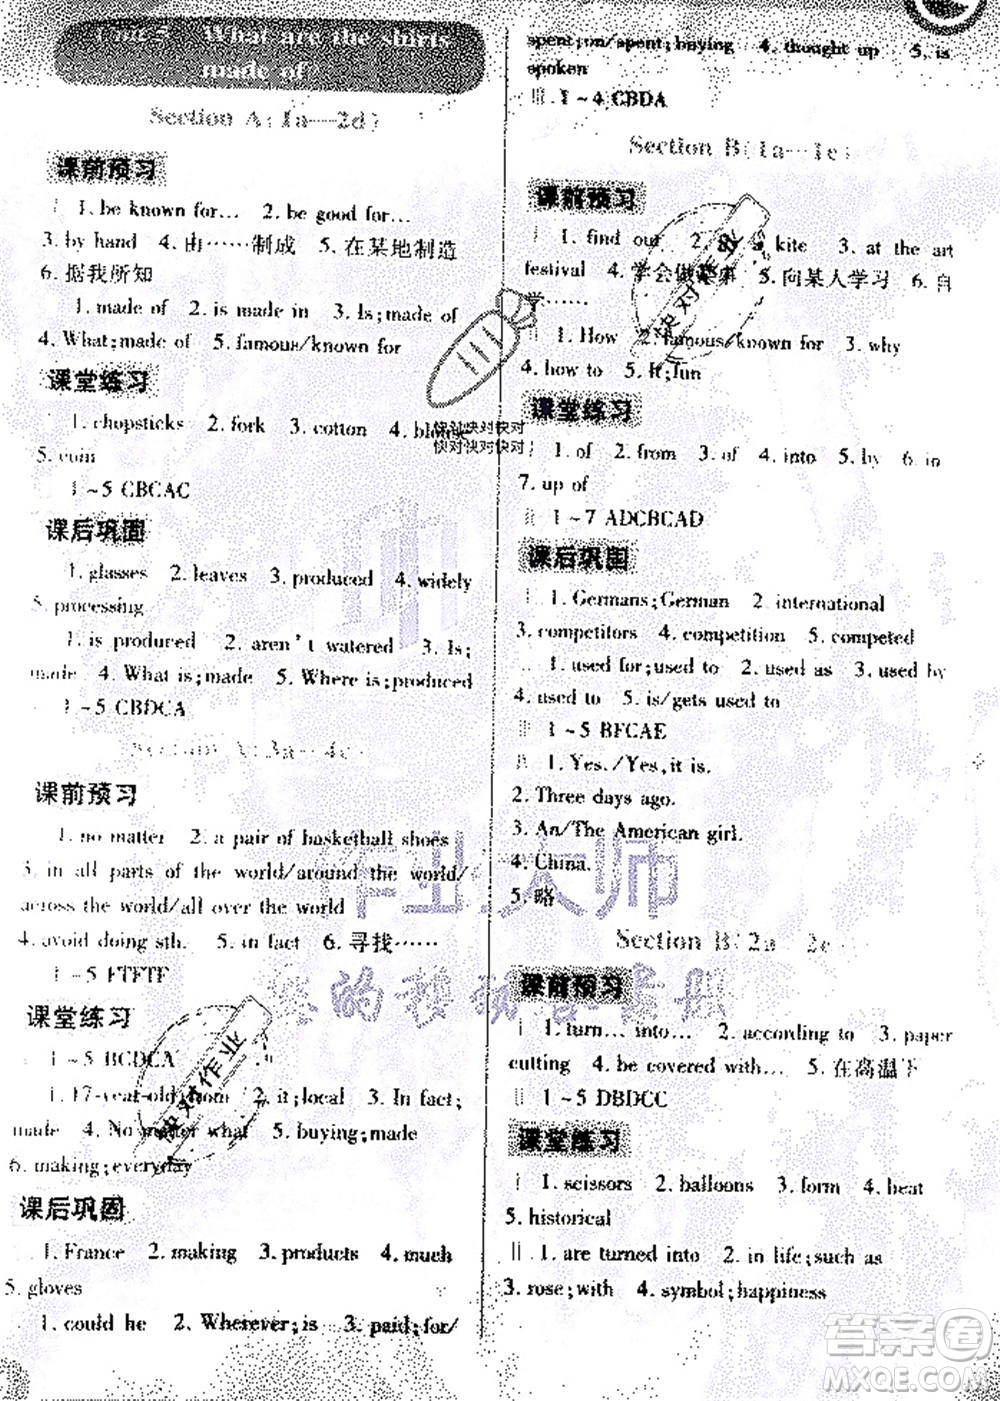 Unit 5 What are the shirts
made of?
Section A(1a—2d)
课前预习
1. be known for… 2. be good for…
3. by hand 4. 由……制成 5. 在某地制造
6. 据我所知
1. made of 2. is made in 3. Is;made of
4. What;made of 5. famous/known for
课堂练习
1. chopsticks 2. fork 3. cotton 4.
5. coin
1~5 CBCAC
课后巩固
1. glasses 2. leaves 3. produced 4. widely
5. processing
1. is produced 2. aren't watered 3. Is;
made 4. What is;made 5. Where is;produced
1~5 CBDCA
Section A(3a—4c)
课前预习
1. no matter 2. a pair of basketball shoes
3. in all parts of the world/around the world/
across the world/all over the world
4. avoid doing sth. 5. in fact 6. 寻找……
1~5 FTFTF
课堂练习
1~5 BCDCA
1. 17-year-old;from 2. it;local 3. In fact;
made 4. No matter what 5. buying;made
6. making;everyday
课后巩固
1. France 2. making 3. products 4. much
5. gloves
1. could be 2. Wherever;is 3. paid;for/
spent;on/spent;buying 4. thought up 5. is
spoken
Ⅲ 1~4 CBDA
Section B(1a—1e)
课前预习
Ⅰ 1. find out 2. a kite 3. at the art
festival 4. 学会做某事 5. 向某人学习 6. 自
学……
Ⅱ 1. How 2. famous/known for 3. why
4. how to 5. It;fun
课堂练习
Ⅰ 1. of 2. from 3. of 4. into 5. by 6. in
7. up of
Ⅱ 1~7 ADCBCAD
课后巩固
Ⅰ 1. Germans;German 2. international
3. competitors 4. competition 5. competed
1. used for;used to 2. used as 3. used by
4. used to 5. is/gets used to
Ⅲ 1~5 BFCAE
Ⅳ 1. Yes./Yes,it is.
2. Three days ago.
3. An/The American girl.
4. China.
5. 略
Section B(2a—2e)
课前预习
Ⅰ 1. turn… into… 2. according to 3. paper
cutting 4. be covered with… 5. 在高温下
Ⅱ 1~5 DBDCC
课堂练习
Ⅰ 1. scissors 2. balloons 3. form 4. heat
5. historical
Ⅱ 1. are turned into 2. in life;such as
3. rose;with 4. symbol;happiness
快对快对快对
快对快对快对
快对作业
快对作业
作业大师
答案圈
MXQE.COM